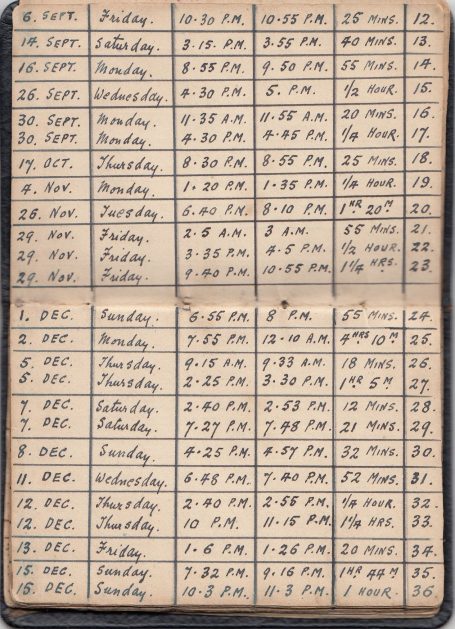 6. SEPT. Friday. 10.30 P.M. 10.55 P.M. 25 MINS. 12.
14. SEPT. Saturday. 3.15. P.M. 3.55 P.M. 40 MINS. 13.
16. SEPT. Monday. 8.55 P.M. 9.50 P.M. 55 MINS. 14.
26. SEPT. Wednesday. 4.30 P.M. 5. P.M. 1/2 HOUR. 15.
30. SEPT. Monday. 11.35 A.M. 11.55 A.M. 20 MINS. 16.
30. SEPT. Monday. 4.30 P.M. 4.45 P.M. 1/4 HOUR. 17.
17. OCT. Thursday. 8.30 P.M. 8.55 P.M. 25 MINS. 18.
4. NOV. Monday. 1.20 P.M. 1.35 P.M. 1/4 HOUR. 19.
26. NOV. Tuesday. 6.40 P.M. 8.10 P.M. 1 HR 20 M 20.
29. NOV. Friday. 2.5 A.M. 3 A.M. 55 MINS. 21.
29. NOV. Friday. 3.35 P.M. 4.5 P.M. 1/2 HOUR. 22.
29. NOV. Friday. 9.40 P.M. 10.55 P.M. 1 1/4 HRS. 23.
1. DEC. Sunday. 6.55 P.M. 8 P.M. 55 MINS. 24.
2. DEC. Monday. 7.55 P.M. 12.10 A.M. 4 HRS 10 M 25.
5. DEC. Thursday. 9.15 A.M. 9.33 A.M. 18 MINS. 26.
5. DEC. Thursday. 2.25 P.M. 3.30 P.M. 1 HR 5 M 27.
7. DEC. Saturday. 2.40 P.M. 2.53 P.M. 12 MINS. 28.
7. DEC. Saturday. 7.27 P.M. 7.48 P.M. 21 MINS. 29.
8. DEC. Sunday. 4.25 P.M. 4.57 P.M. 32 MINS. 30.
11. DEC. Wednesday. 6.48 P.M. 7.40 P.M. 52 MINS. 31.
12. DEC. Thursday. 2.40 P.M. 2.55 P.M. 1/4 HOUR. 32.
12. DEC. Thursday. 10 P.M. 11.15 P.M. 1 1/4 HRS. 33.
13. DEC. Friday. 1.6 P.M. 1.26 P.M. 20 MINS. 34.
15. DEC. Sunday. 7.32 P.M. 9.16 P.M. 1 HR 44 M 35.
15. DEC. Sunday. 10.3 P.M. 11.3 P.M. 1 HOUR. 36.